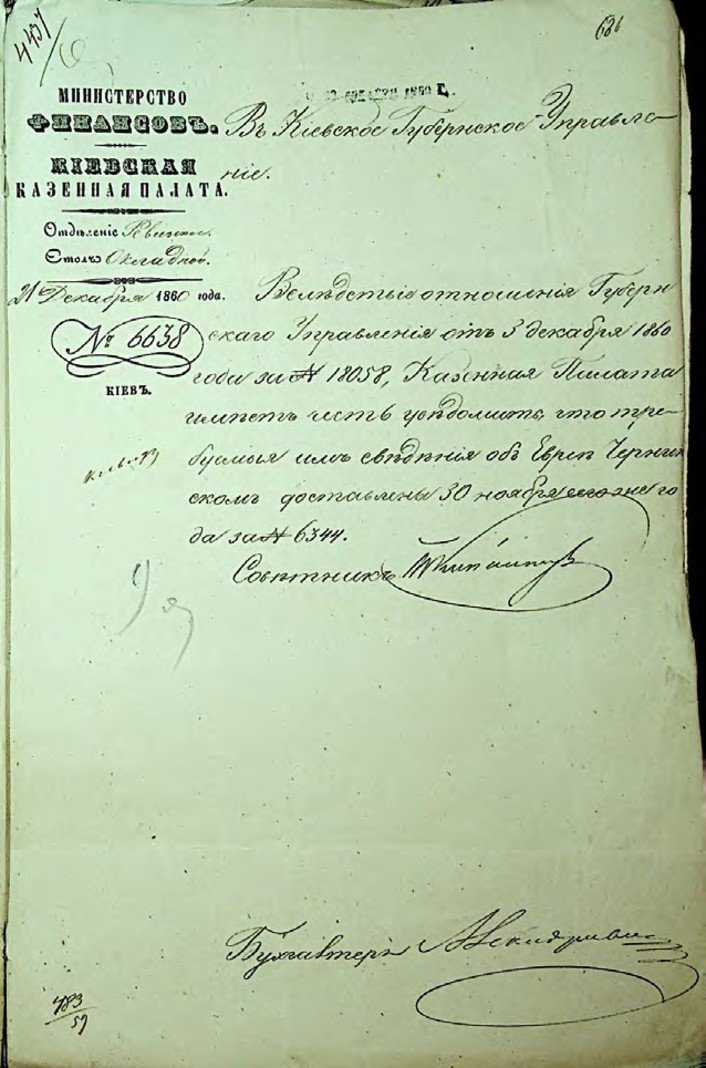 4437
626
МИНИСТЕРСТВО
ФИНАНСОВЪ.
КІЕВСКАЯ
КАЗЕННАЯ ПАЛАТА.
Отдѣленіе Ревизское.
Столъ Окладной.
21 Декабря 1860 года.
№ 6638
КІЕВЪ.
Въ Кіевское Губернское Управле-
ніе.
Вслѣдствіе отношенія Губерн
скаго Управленія отъ 3 декабря 1860
года за № 18058, Казенная Палата
имѣетъ честь увѣдомить, что тре-
буемыя имъ свѣдѣнія объ Евреѣ Чернин
скомъ доставлены 30 ноября сего же го
да за № 6344.
Совѣтникъ
Бухгалтеръ
483
59